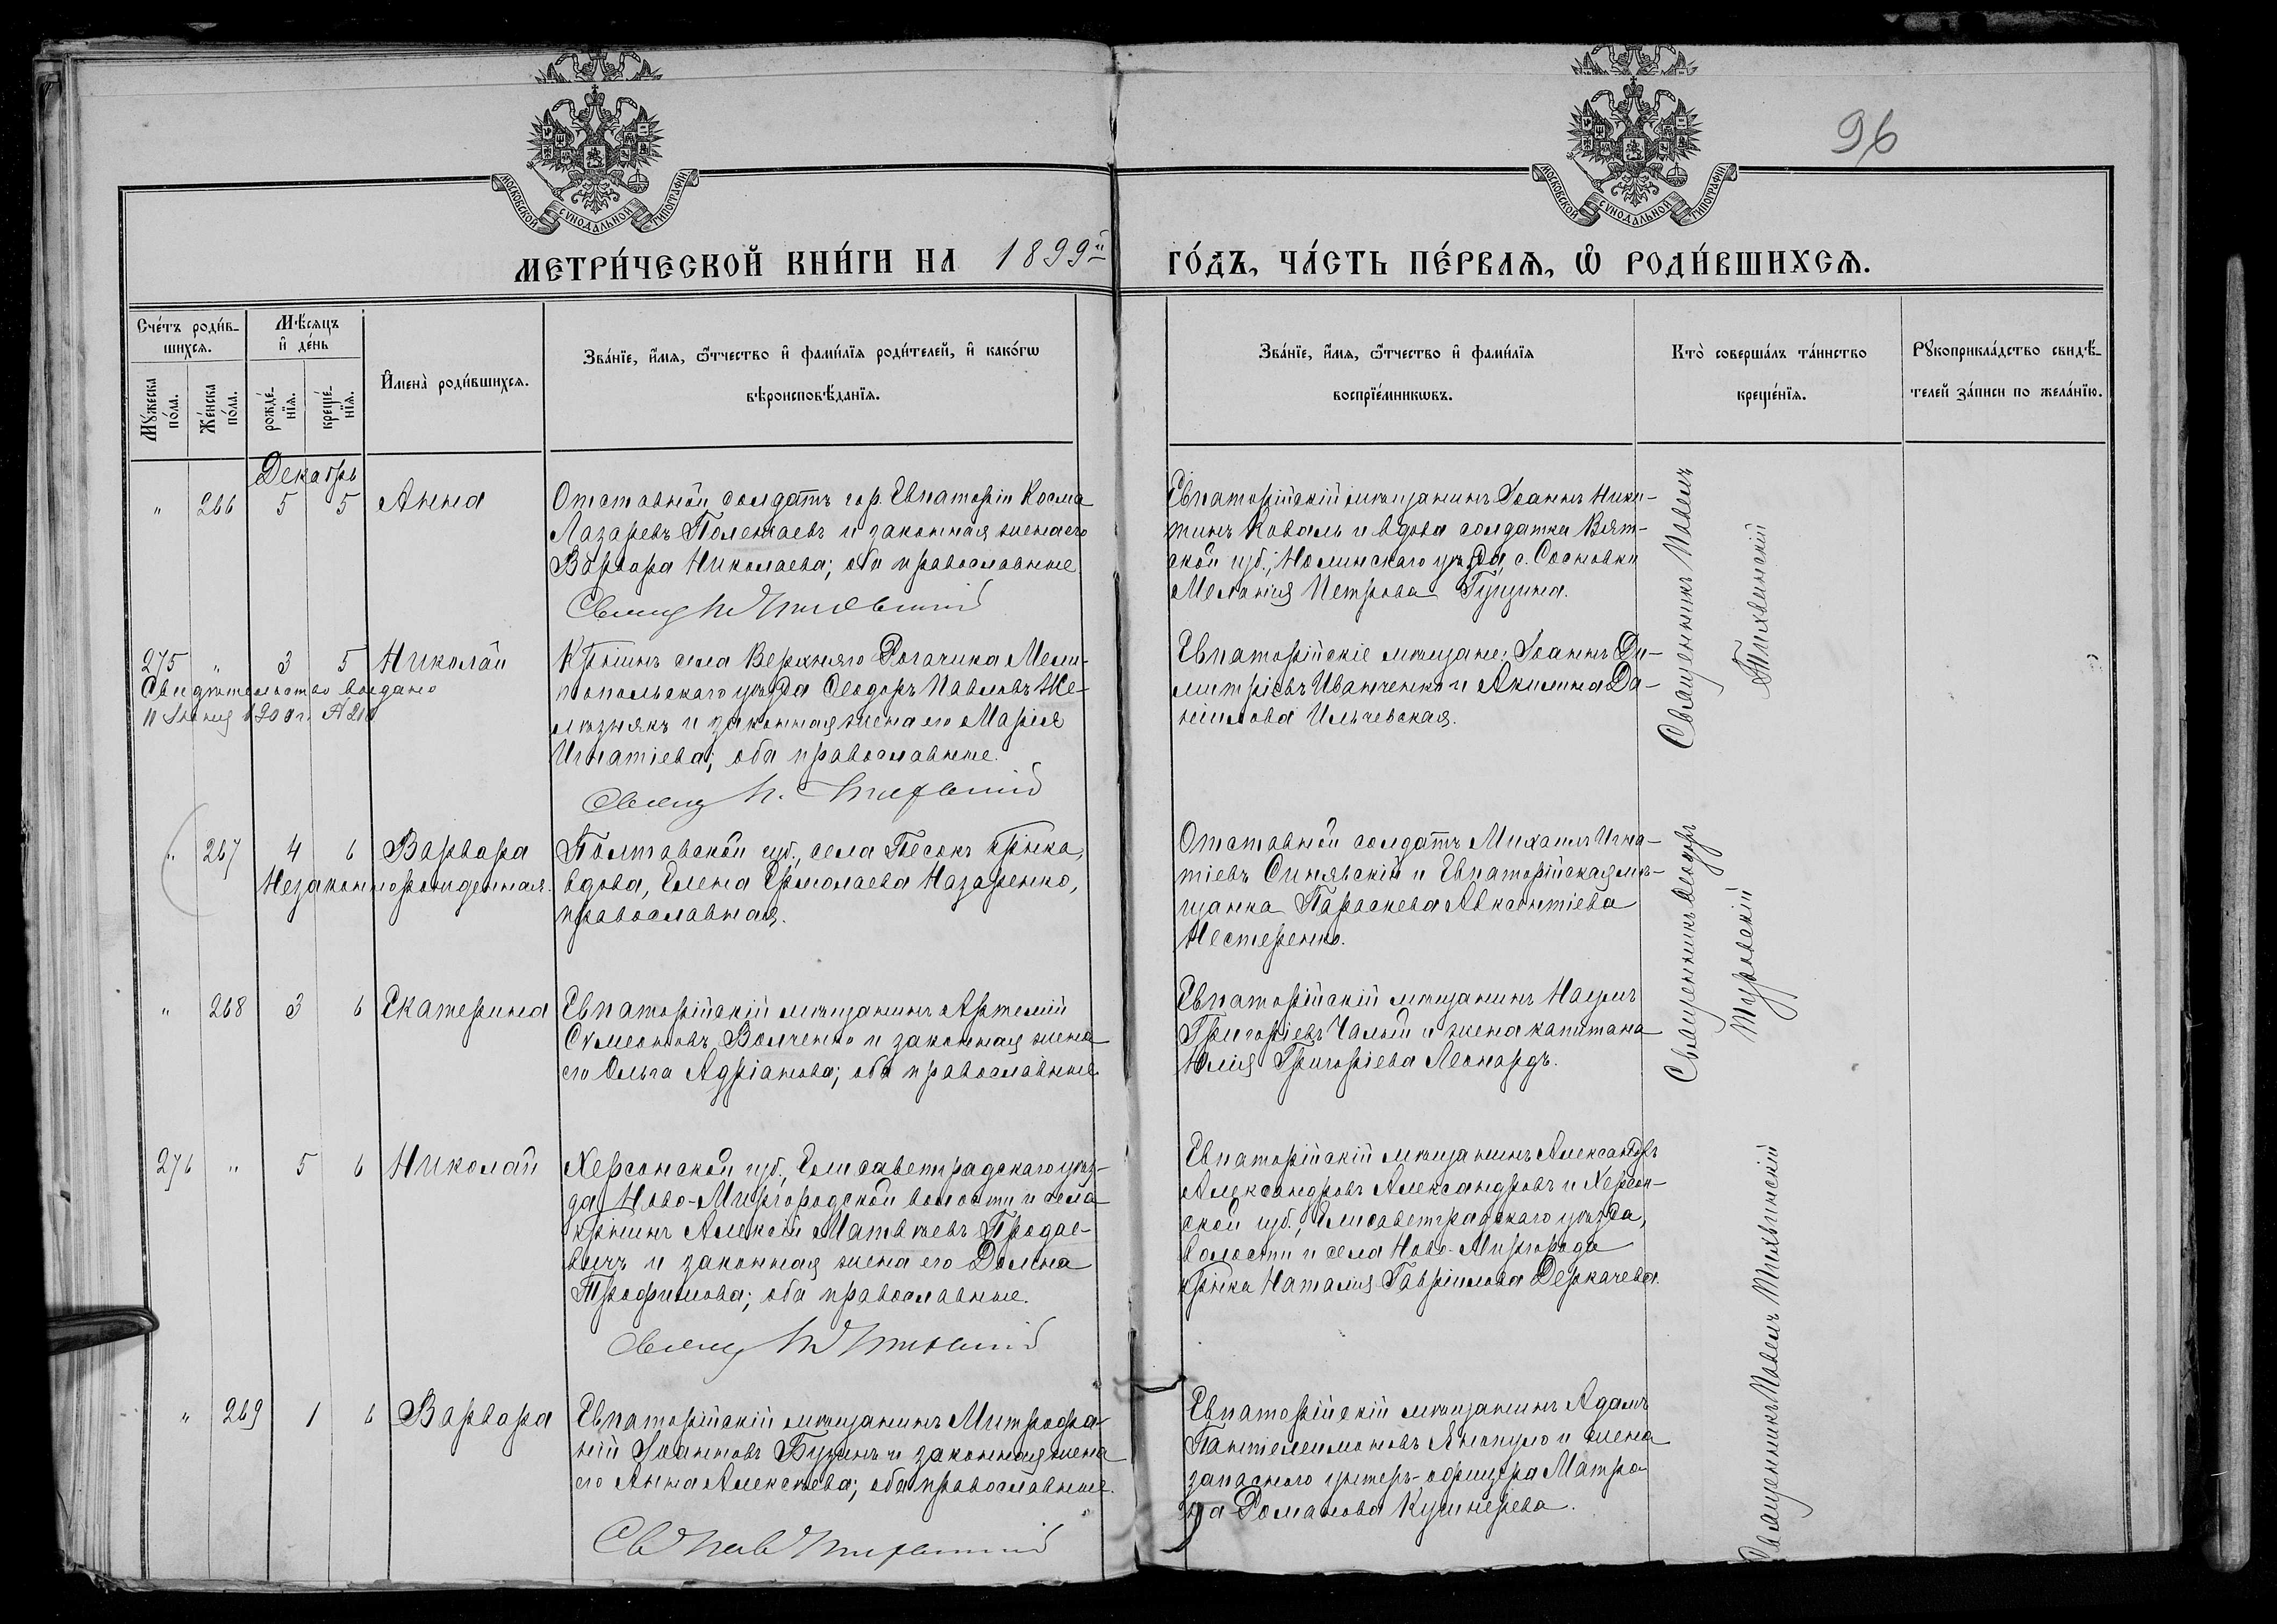 96
МОСКОВСКОЙ СУНОДАЛЬНОЙ ТИПОГРАФІИ
МОСКОВСКОЙ СУНОДАЛЬНОЙ ТИПОГРАФІИ
МЕТРИ́ЧЕСКОЙ КНИ́ГИ НА 1899й
ГО́ДЪ, ЧА́СТЬ ПЕ́РВАѦ, Ѡ҆ РОДИ́ВШИХСѦ.
Сче́тъ роди́в-
шихсѧ.
Мꙋжеска по́ла.
Же́нска по́ла.
Мѣ́сѧцъ
и҆ де́нь
рожде́-
нїѧ.
креще́-
нїѧ.
И҆мена̀ роди́вшихсѧ.
Зва́нїе, и҆́мѧ, ѻ҆́тчество и҆ фами́лїѧ роди́телей, и҆ како́гѡ
вѣроисповѣ́данїѧ.
Зва́нїе, и҆́мѧ, ѻ҆́тчество и҆ фами́лїѧ
воспрїе́мникѡвъ.
Кто̀ соверша́лъ та́инство
креще́нїѧ.
Рꙋкоприкла́дство свидѣ́-
телей за́писи по жела́нїю.
Декабрь
" 266 5 5 Анна
Отставной солдатъ гор. Евпаторіи Косма
Лазаревъ Полежаевъ и законная жена его
Варвара Николаева; оба православные
Евпаторійскій мѣщанинъ Іоаннъ Ники-
тинъ Коваль и вдова солдатка Вят-
ской губ., Нолинскаго уѣзда, с. Сосновки
Меланія Петрова Гущина.
Священникъ Павелъ
Тихвинскій
275 " 3 5 Николай
Свидѣтельство выдано
11 Іюня 1900 г.
Кр҃нинъ села Верхняго Рогачика Мели-
топольскаго уѣзда Ѳеодоръ Павловъ Же-
лѣзнякъ и законная жена его Марія
Игнатіева; оба православные.
Свящ П. Тихвинскій
Евпаторійскіе мѣщане: Іоаннъ Ди-
митріевъ Иванченко и Акилина Да-
ніилова Ильчевская.
" 267 4 6 Варвара
Незаконнорожденная.
Полтавской губ., села Песокъ кр҃нка,
вдова, Елена Ермолаева Назаренко,
православная.
Отставной солдатъ Михаилъ Игна-
тіевъ Синявскій и Евпаторійская мѣ-
щанка Параскева Авксентіева
Нестеренко.
Священникъ Ѳеодоръ
Туровскій
" 268 3 6 Екатерина
Евпаторійскій мѣщанинъ Артемій
Сѵмеоновъ Волченко и законная жена
его Ольга Адріанова; оба православные
Евпаторійскій мѣщанинъ Наумъ
Григоріевъ Чалый и жена капитана
Юлія Григоріева Леонардъ.
276 " 5 6 Николай
Херсонской губ., Елисаветградскаго уѣз-
да Ново-Миргородской волости и села
кр҃нинъ Алексій Матвѣевъ Продае-
вичъ и законная жена его Домна
Трофимова; оба православные.
Евпаторійскій мѣщанинъ Александръ
Александровъ Александровъ и Херсон-
ской губ., Елисаветградскаго уѣзда,
волости и села Ново-Миргорода
кр҃нка Наталія Гавріилова Деркачева.
Священникъ Павелъ Тихвинскій
" 269 1 6 Варвара
Евпаторійскій мѣщанинъ Митрофа-
ній Іоанновъ Бузинъ и законная жена
его Анна Алексѣева; оба православные.
Св Пав Тихвинскій
Евпаторійскій мѣщанинъ Адамъ
Пантелеимоновъ Янопуло и жена
запаснаго унтеръ-офицера Матро-
на Романова Кушнерева.